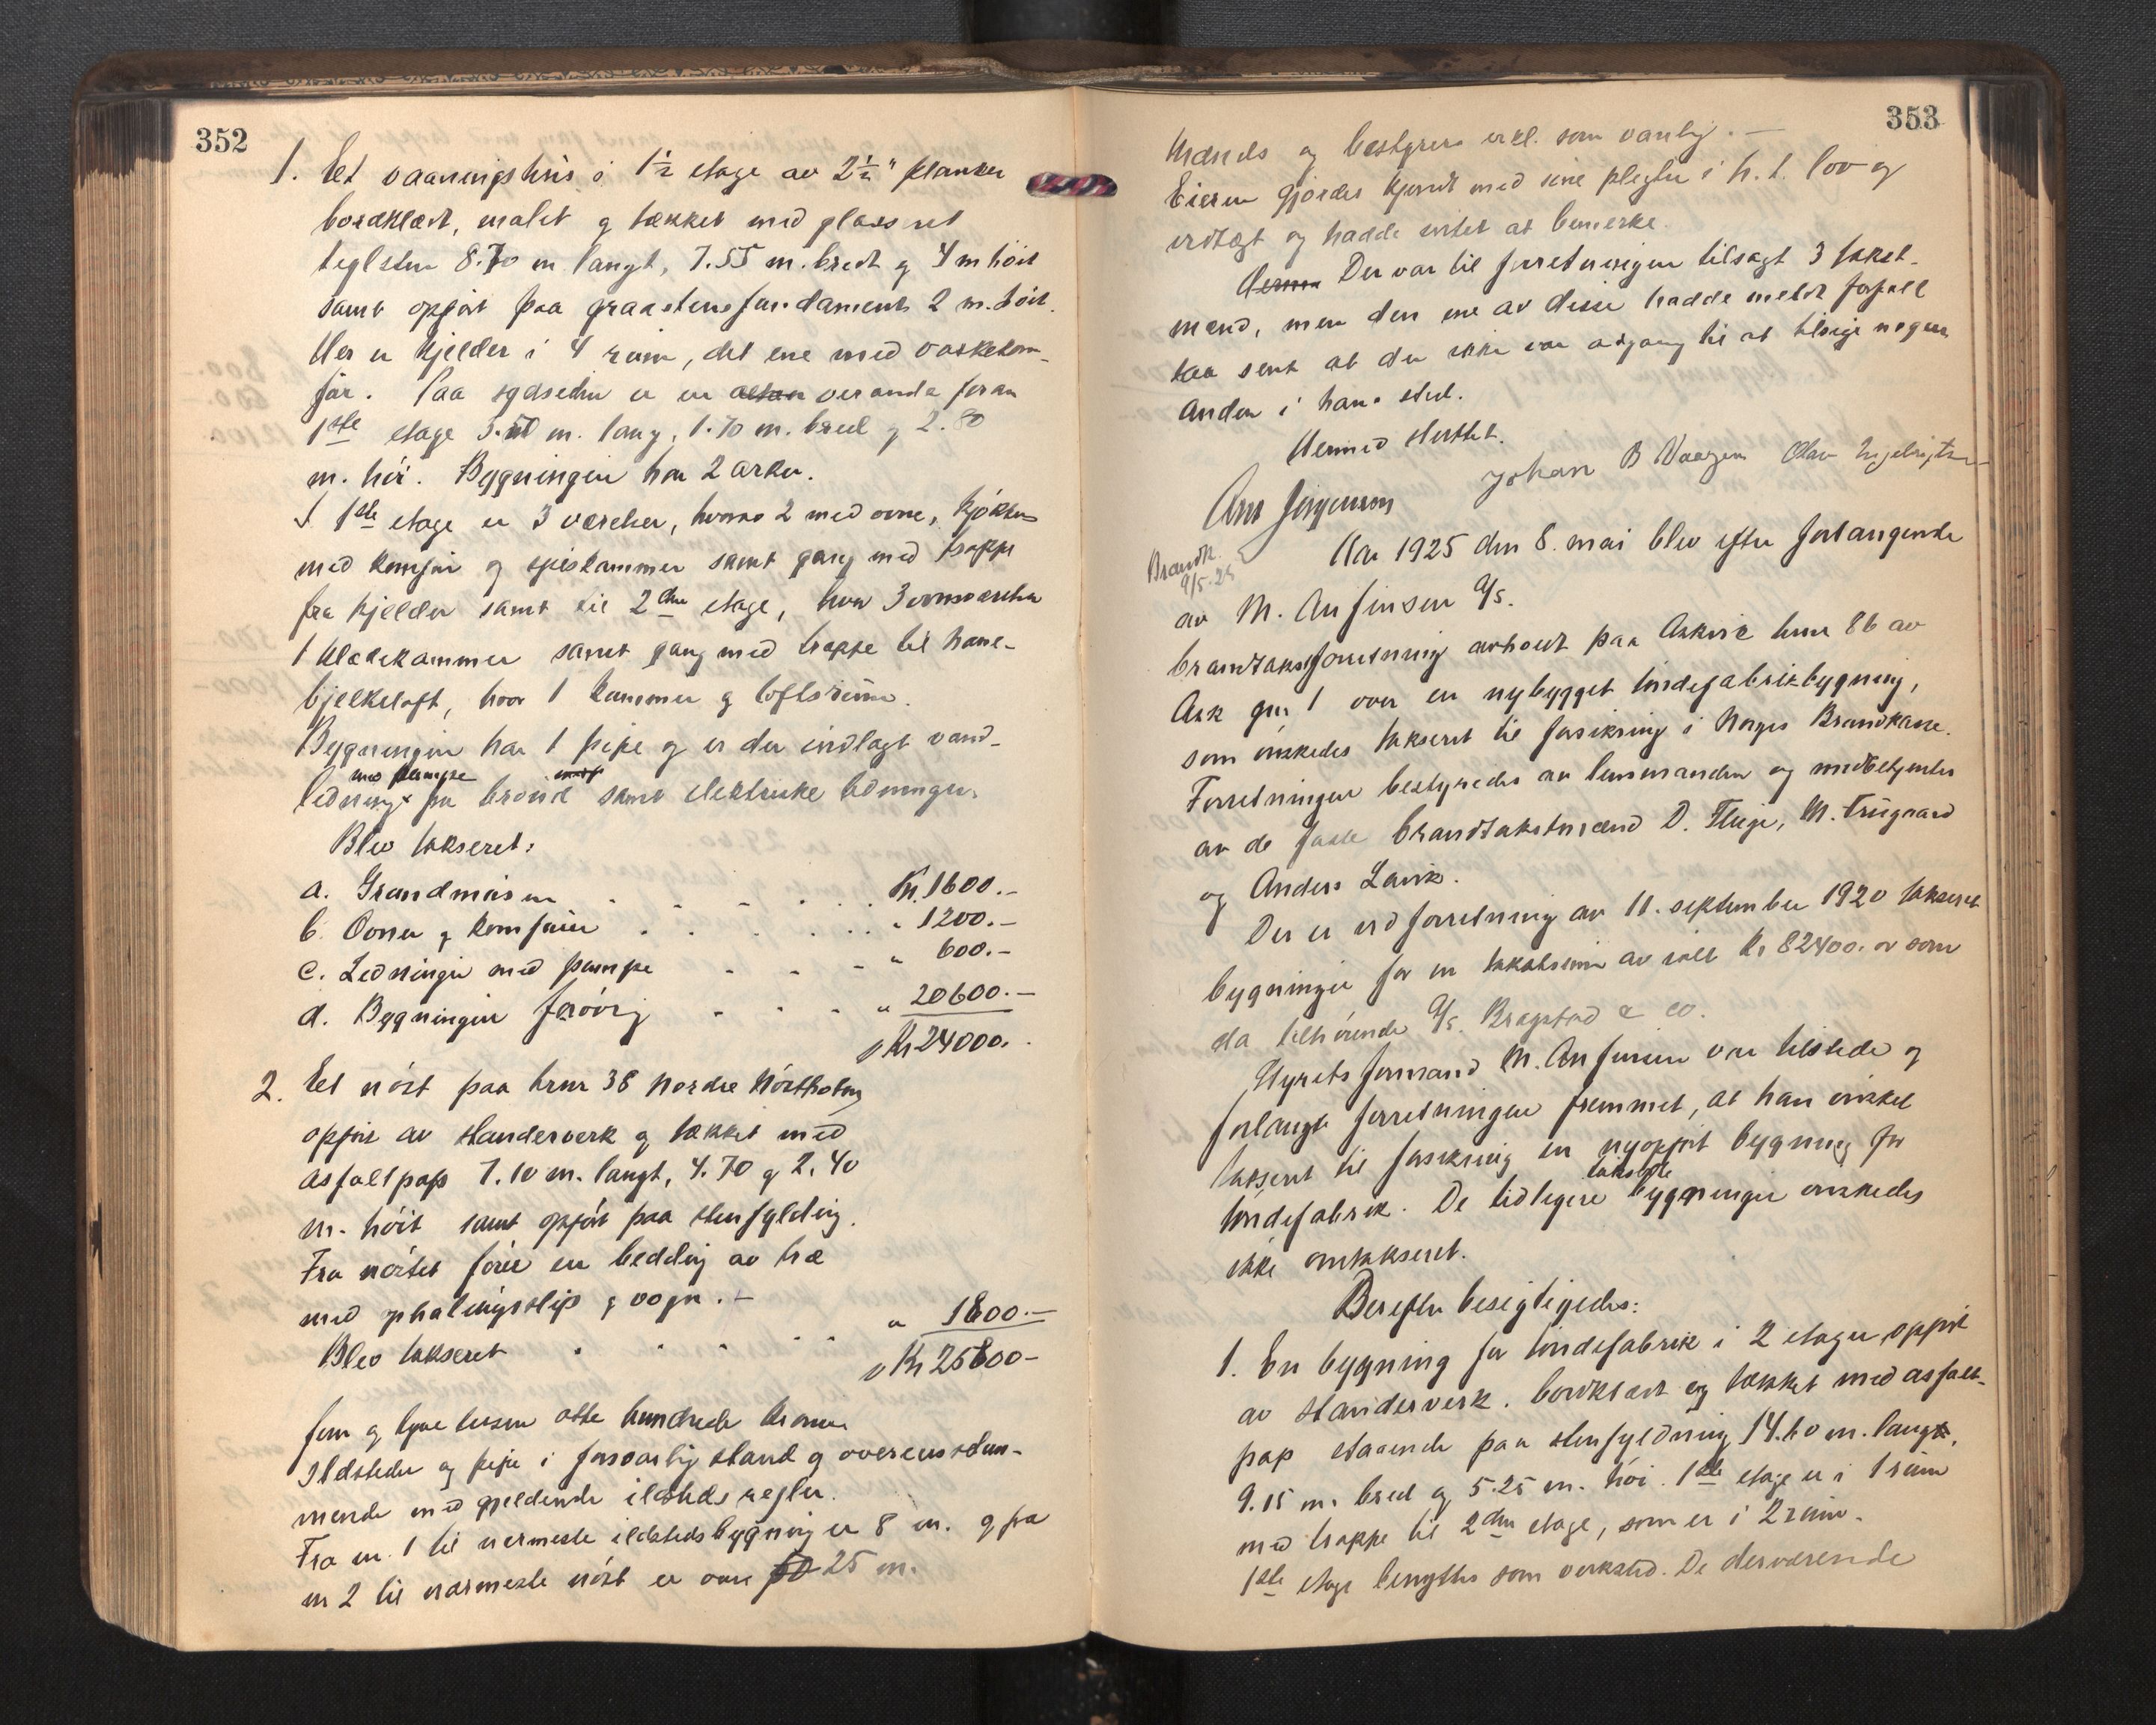 352
1. Et vaaningshus i 1½ etage av 2½" planker
bordklædt, malet og tækket med glassert
teglsten 8.70 m langt, 7.55 m. bredt og 4 m höit
samt opført paa graastensfundament 2 m. höit.
Her er kjelder i 4 rum, det ene med vaskekom-
før. Paa sydsiden er en altan veranda foran
1ste etage 3.50 m. lang, 1.70 m. bred og 2.80
m. höi. Bygningen har 2 arker.
I 1ste etage er 3 værelser, hvorav 2 med ovne, kjökken
med komfur og spiskammer samt gang med trappe
fra kjelder samt til 2den etage, hvor 3 ovnsværelser
1 klædekammer samt gang med trappe til hane-
bjelkeloft, hvor 1 kammer og loftsrum.
Bygningen har 1 pipe og er der indlagt vand-
med pumpe
ledning fra brönd samt elektriske ledninger.
Blev takseret:
a. Grundmuren . . . . . Kr. 1600.-
b. Ovner og komfurer . . . . . " 1200.-
c. Ledninger med pumpe - - - " 600.-
d. Bygningen forövrig - - - " 20600.-
Kr 24000.-
2. Et nöst paa brnr 38 Nordre Nöstholmen
opfört av standerverk og tækket med
asfaltpap 7.10 m. langt, 4.70 og 2.40
m. höit samt opfört paa stenfylding.
Fra nöstet förer en bedding av træ
med ophalingsslip og vogn. -
Blev takseret . . . . " 1800.-
Kr 25800-
fem og tyve tusen otte hundrede kroner
Ildsteder og pipe i forsvarlig stand og overensstem-
mende med gjeldende ildstedsregler.
Fra nr. 1 til nermeste ildstedsbygning er 8 m. og fra
nr 2 til nærmeste nöst er over 50 25 m.
353
Mænds og bestyrers erkl. som vanlig. -
Eieren gjordes kjendt med sine plegter i h. t. lov og
vedtægt og hadde intet at bemerke.
Der var til forretningen tilsagt 3 takst-
mænd, men den ene av disse hadde meldt forfall
saa sent at der ikke var adgang til at tilsige nogen
anden i hans sted.
Hermed sluttet.
Johan B Vaagen Olav Ingebrigtsen
Ans Jörgensen
Brandk.
9/5.25
Aar 1925 den 8. mai blev efter forlangende
av M. Anfinsen A/S.
brandtakstforretning avholdt paa Askvik brnr 86 av
Ask gnr 1 over en nybygget töndefabrikbygning,
som önskedes takseret til forsikring i Norges Brandkasse.
Forretningen bestyredes av lensmanden og medbetjentes
av de faste brandtakstmænd D. Fluge, M. Friigaard
og Anders Lavik.
Der er ved forretning av 11. september 1920 takseret
bygninger for en takstsum av ialt kr 82400.- som
da tilhörende A/S. Bragstad & Co.
Styrets formand M. Anfinsen var tilstede og
forlangte forretningen fremmet, at han önsket
takseret til forsikring en nyopfört bygning for
takserte
töndefabrik. De tidligere bygninger önskedes
ikke omtakseret.
Derefter besigtigedes:
1. En bygning for töndefabrik i 2 etager, opfört
av standerverk, bordklædt og tækket med asfalt-
pap staaende paa stenfyldning 14.60 m. lang,
9.15 m. bred og 5.25 m. höi. 1ste etage er i 1 rum
med trappe til 2den etage, som er i 2 rum.
1ste etage benyttes som verksted. De derværende